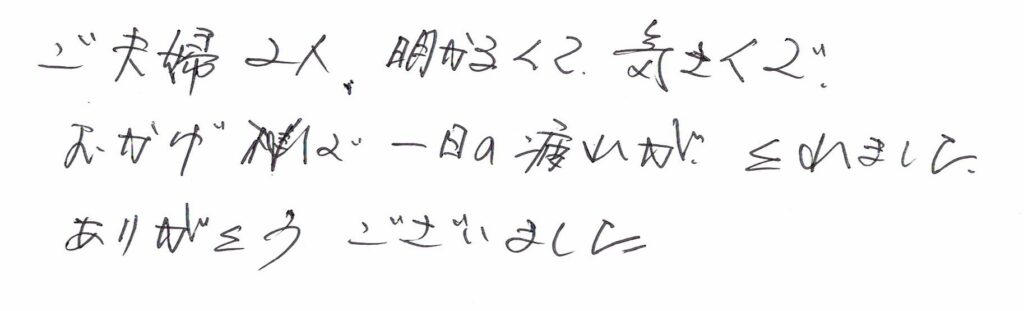 ご夫婦2人、明かるくて、気さくで、
おかげ様で一日の疲れが、とれました、
ありがとうございました